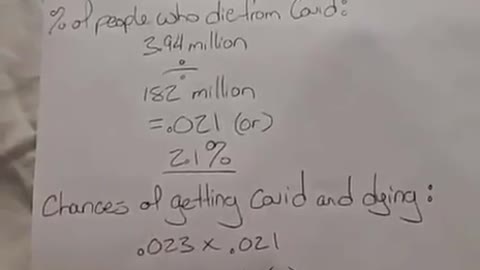 % of people who die from Covid:
3.94 million
÷
182 million
=.021 (or)
2.1%
Chances of getting Covid and dying:
.023 x .021